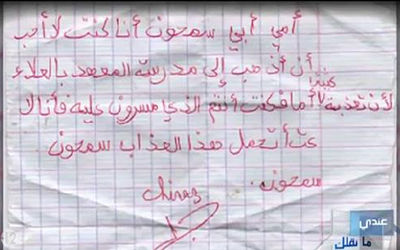 أمي أبي سمحون أنا كنت لا أحب
أن أذهب إلى مدرسة المعهد بالعلاء
لأن تعذبة
كنت أنتم الذي مسرون عليه فأنا لا
عت أتحمل هذا العذاب سمحون
سمحون.
Chiraz
عندي
ما نقلك